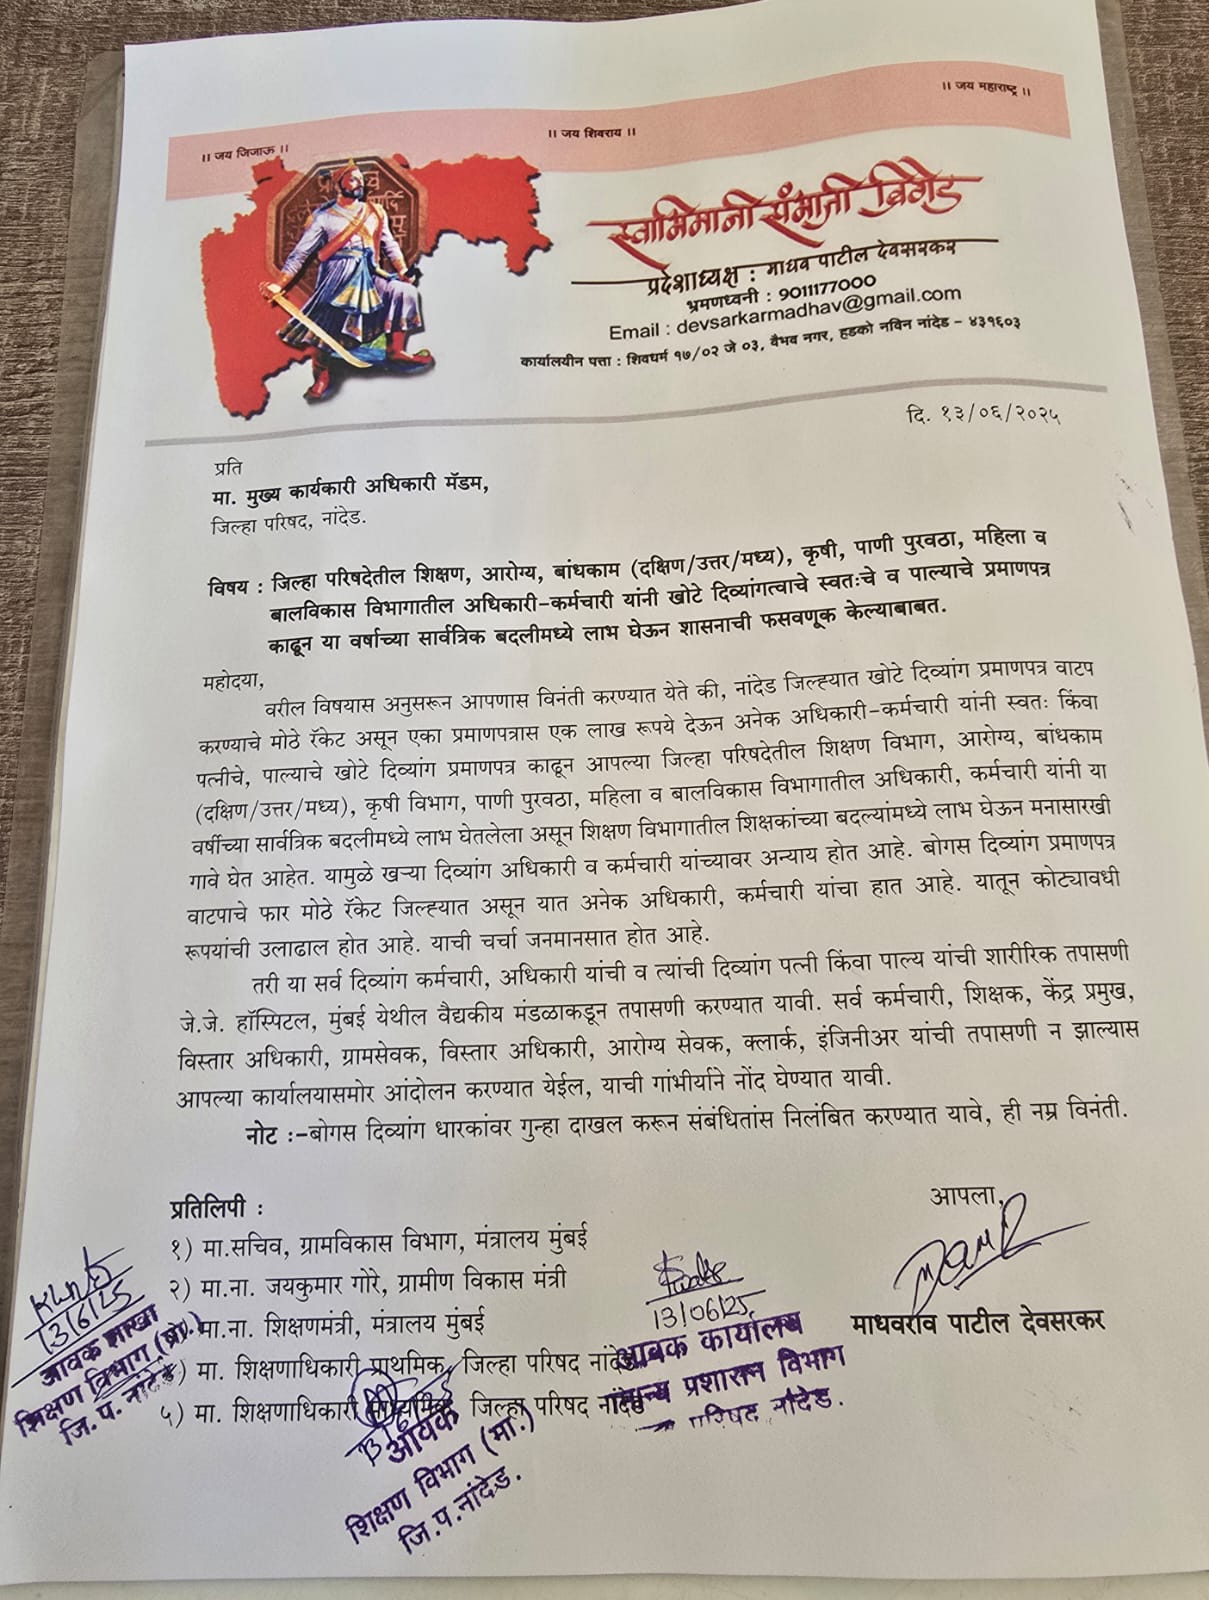 ।। जय जिजाऊ ।।
।। जय शिवराय ।।
।। जय महाराष्ट्र ।।
स्वाभिमानी संभाजी ब्रिगेड
प्रदेशाध्यक्ष : माधव पाटील देवसरकर
भ्रमणध्वनी : 9011177000
Email : devsarkarmadhav@gmail.com
कार्यालयीन पत्ता : शिवधर्म १७/०२ जे ०३, वैभव नगर, हडको नविन नांदेड - ४३१६०३
दि. १३/०६/२०२५
प्रति
मा. मुख्य कार्यकारी अधिकारी मॅडम,
जिल्हा परिषद, नांदेड.
विषय : जिल्हा परिषदेतील शिक्षण, आरोग्य, बांधकाम (दक्षिण/उत्तर/मध्य), कृषी, पाणी पुरवठा, महिला व
बालविकास विभागातील अधिकारी-कर्मचारी यांनी खोटे दिव्यांगत्वाचे स्वतःचे व पाल्याचे प्रमाणपत्र
काढून या वर्षाच्या सार्वत्रिक बदलीमध्ये लाभ घेऊन शासनाची फसवणूक केल्याबाबत.
महोदया,
वरील विषयास अनुसरून आपणास विनंती करण्यात येते की, नांदेड जिल्ह्यात खोटे दिव्यांग प्रमाणपत्र वाटप
करण्याचे मोठे रॅकेट असून एका प्रमाणपत्रास एक लाख रूपये देऊन अनेक अधिकारी-कर्मचारी यांनी स्वतः किंवा
पत्नीचे, पाल्याचे खोटे दिव्यांग प्रमाणपत्र काढून आपल्या जिल्हा परिषदेतील शिक्षण विभाग, आरोग्य, बांधकाम
(दक्षिण/उत्तर/मध्य), कृषी विभाग, पाणी पुरवठा, महिला व बालविकास विभागातील अधिकारी, कर्मचारी यांनी या
वर्षीच्या सार्वत्रिक बदलीमध्ये लाभ घेतलेला असून शिक्षण विभागातील शिक्षकांच्या बदल्यांमध्ये लाभ घेऊन मनासारखी
गावे घेत आहेत. यामुळे खऱ्या दिव्यांग अधिकारी व कर्मचारी यांच्यावर अन्याय होत आहे. बोगस दिव्यांग प्रमाणपत्र
वाटपाचे फार मोठे रॅकेट जिल्ह्यात असून यात अनेक अधिकारी, कर्मचारी यांचा हात आहे. यातून कोट्यावधी
रूपयांची उलाढाल होत आहे. याची चर्चा जनमानसात होत आहे.
तरी या सर्व दिव्यांग कर्मचारी, अधिकारी यांची व त्यांची दिव्यांग पत्नी किंवा पाल्य यांची शारीरिक तपासणी
जे.जे. हॉस्पिटल, मुंबई येथील वैद्यकीय मंडळाकडून तपासणी करण्यात यावी. सर्व कर्मचारी, शिक्षक, केंद्र प्रमुख,
विस्तार अधिकारी, ग्रामसेवक, विस्तार अधिकारी, आरोग्य सेवक, क्लार्क, इंजिनीअर यांची तपासणी न झाल्यास
आपल्या कार्यालयासमोर आंदोलन करण्यात येईल, याची गांभीर्याने नोंद घेण्यात यावी.
नोट :-बोगस दिव्यांग धारकांवर गुन्हा दाखल करून संबंधितांस निलंबित करण्यात यावे, ही नम्र विनंती.
आपला,
माधवराव पाटील देवसरकर
प्रतिलिपी :
१) मा.सचिव, ग्रामविकास विभाग, मंत्रालय मुंबई
२) मा.ना. जयकुमार गोरे, ग्रामीण विकास मंत्री
मा.ना. शिक्षणमंत्री, मंत्रालय मुंबई
) मा. शिक्षणाधिकारी प्राथमिक, जिल्हा परिषद नांदेड
५) मा. शिक्षणाधिकारी माध्यमिक, जिल्हा परिषद नांदेड
13/6/25
आवक शाखा
शिक्षण विभाग (प्रा.)
जि. प. नांदेड
आवक
शिक्षण विभाग (मा.)
जि.प.नांदेड.
13/06/25
आवक कार्यालय
सामान्य प्रशासन विभाग
परिषद नांदेड.